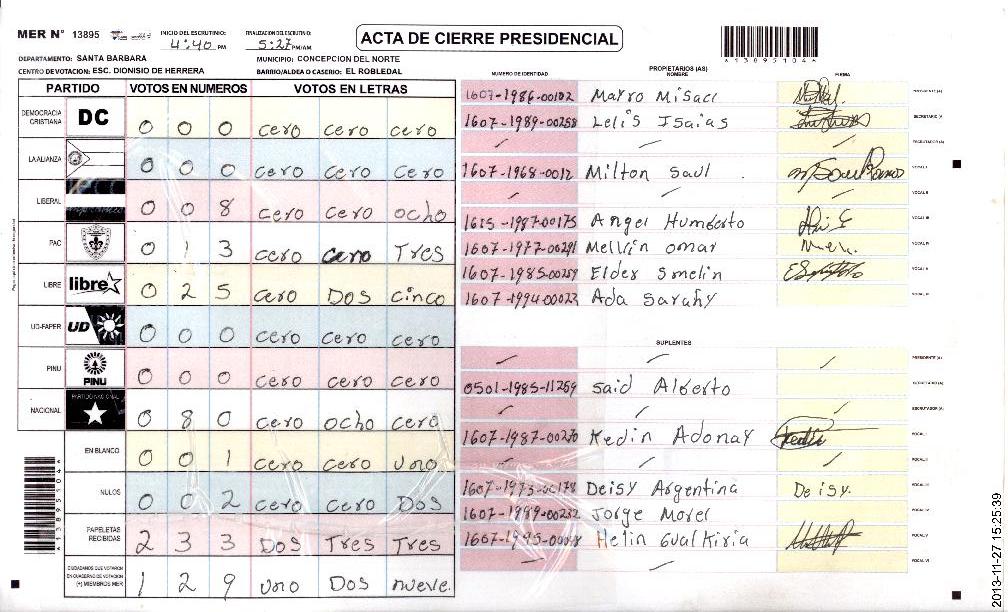 MER N° 13895
INICIO DEL ESCRUTINIO: 4:40 PM
FINALIZACION DEL ESCRUTINIO: 5:27 PM/AM
ACTA DE CIERRE PRESIDENCIAL
*13895104*
DEPARTAMENTO: SANTA BARBARA
MUNICIPIO: CONCEPCION DEL NORTE
CENTRO DE VOTACION: ESC. DIONISIO DE HERRERA
BARRIO/ALDEA O CASERIO: EL ROBLEDAL
PARTIDO VOTOS EN NUMEROS VOTOS EN LETRAS
DEMOCRACIA CRISTIANA DC 0 0 0 cero cero cero
LA ALIANZA 0 0 0 cero cero cero
LIBERAL 0 0 8 cero cero ocho
PAC 0 1 3 cero cero Tres
LIBRE libre 0 2 5 cero DOS cinco
UD-FAPER UD 0 0 0 cero cero cero
PINU PINU 0 0 0 cero cero cero
NACIONAL PARTIDO NACIONAL 0 8 0 cero ocho cero
EN BLANCO 0 0 1 cero cero uno
NULOS 0 0 2 cero cero Dos
PAPELETAS RECIBIDAS 2 3 3 Dos Tres Tres
CIUDADANOS QUE VOTARON EN CUADERNO DE VOTACION (+) MIEMBROS MER) 1 2 9 uno Dos nueve.
*13895104*
PROPIETARIOS (AS)
NUMERO DE IDENTIDAD NOMBRE FIRMA
1607-1986-00102 Marro Misael PRESIDENTE (A)
1607-1989-00258 Lelis Isaias SECRETARIO (A)
ESCRUTADOR (A)
1607-1968-0012 Milton Saul VOCAL I
VOCAL II
1615-1987-00175 Angel Humberto VOCAL III
1607-1977-00291 Melvin omar VOCAL IV
1607-1985-00259 Elder Smelin VOCAL V
1607-1994-00023 Ada Sarahy VOCAL VI
SUPLENTES
PRESIDENTE (A)
0501-1985-11269 said Alberto SECRETARIO (A)
ESCRUTADOR (A)
1607-1987-00230 Kedin Adonay VOCAL I
VOCAL II
1607-1975-00178 Deisy Argentina Deisy. VOCAL III
1607-1989-00232 Jorge Morel VOCAL IV
Helin Gualkiria VOCAL V
VOCAL VI
2013-11-27 15:25:39